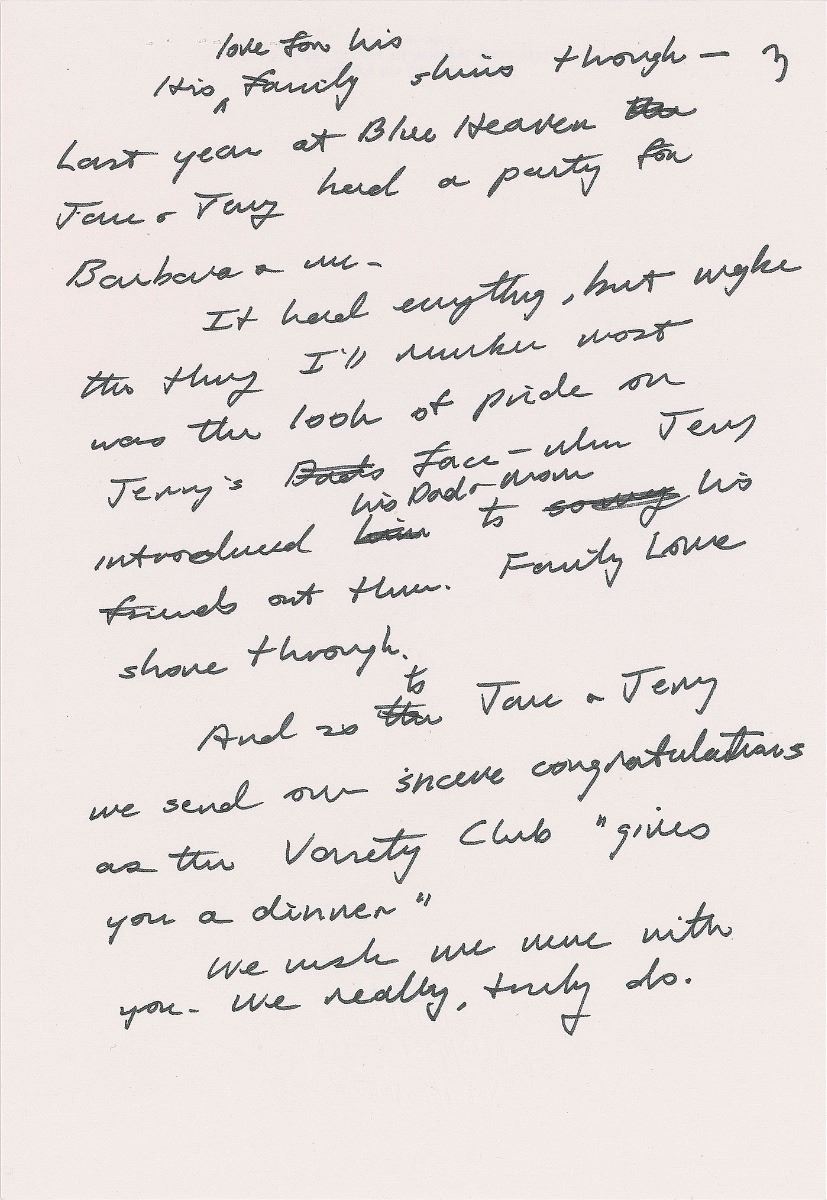 love for his
His ^ family shines through — 3
Last year at Blue Heaven the
Jane & Jerry had a party for
Barbara & me -
It had everything, but maybe
the thing I'll remember most
was the look of pride on
Jerry's Dad's face - when Jerry
his Dad & mom
introduced him to so many his
friends out there. Family Love
shone through.
to
And so the Jane & Jerry
we send our sincere congratulations
as the Variety Club "gives
you a dinner"
We wish we were with
you - We really, truly do.